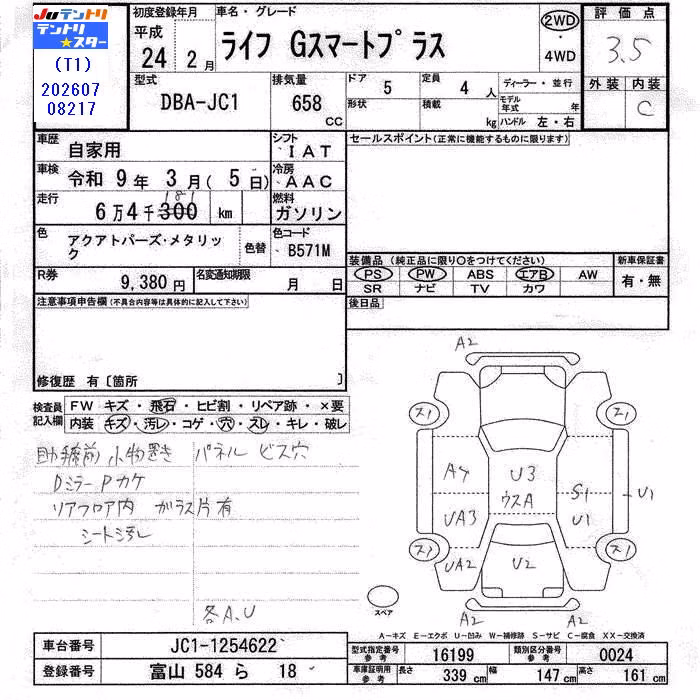 JUテントリ
テントリ★スター
(T1)
202607
08217
初度登録年月
平成
24 2 月
車名・グレード
ライフ Gスマートプラス
2WD
・
4WD
評価点
3.5
外装 内装
C
型式
DBA-JC1
排気量
658
CC
ドア
5
形状
定員
4 人
積載
kg
ディーラー・並行
モデル年式 年
ハンドル 左・右
車歴
自家用
シフト
IAT
車検
令和 9 年 3 月(5 日)
冷房
AAC
走行
6 万 4 千 300 km
181
燃料
ガソリン
色
アクアトパーズ・メタリック
色替
色コード
B571M
R券
9,380 円
名変通知期限
月 日
セールスポイント(正常に機能するものに限ります)
装備品(純正品に限り○をつけてください)
PS PW ABS エアB AW
SR ナビ TV カワ
新車保証書
有・無
後日品
注意事項申告欄(不具合内容等は具体的に記入して下さい)
修復歴 有〔箇所 〕
検査員記入欄
FW キズ・飛石・ヒビ割・リペア跡・×要
内装 キズ・汚レ・コゲ・穴・スレ・キレ・破レ
助手席前 小物置き パネル ビス穴
Dミラー Pカケ
リアフロア内 ガラス片有
シート汚レ
各A.U
A2
ス1
ス1
A4
U3
ウスA
S1
U1
U1
UA3
UA2
U2
ス1
ス1
A2
A2
スペア
A−キズ E−エクボ U−凹み W−補修跡 S−サビ C−腐食 XX−交換済
車台番号
JC1-1254622
登録番号
富山 584 ら 18
型式指定番号
参考
16199
類別区分番号
参考
0024
車庫証明用
参考
長さ 339 cm
幅 147 cm
高さ 161 cm